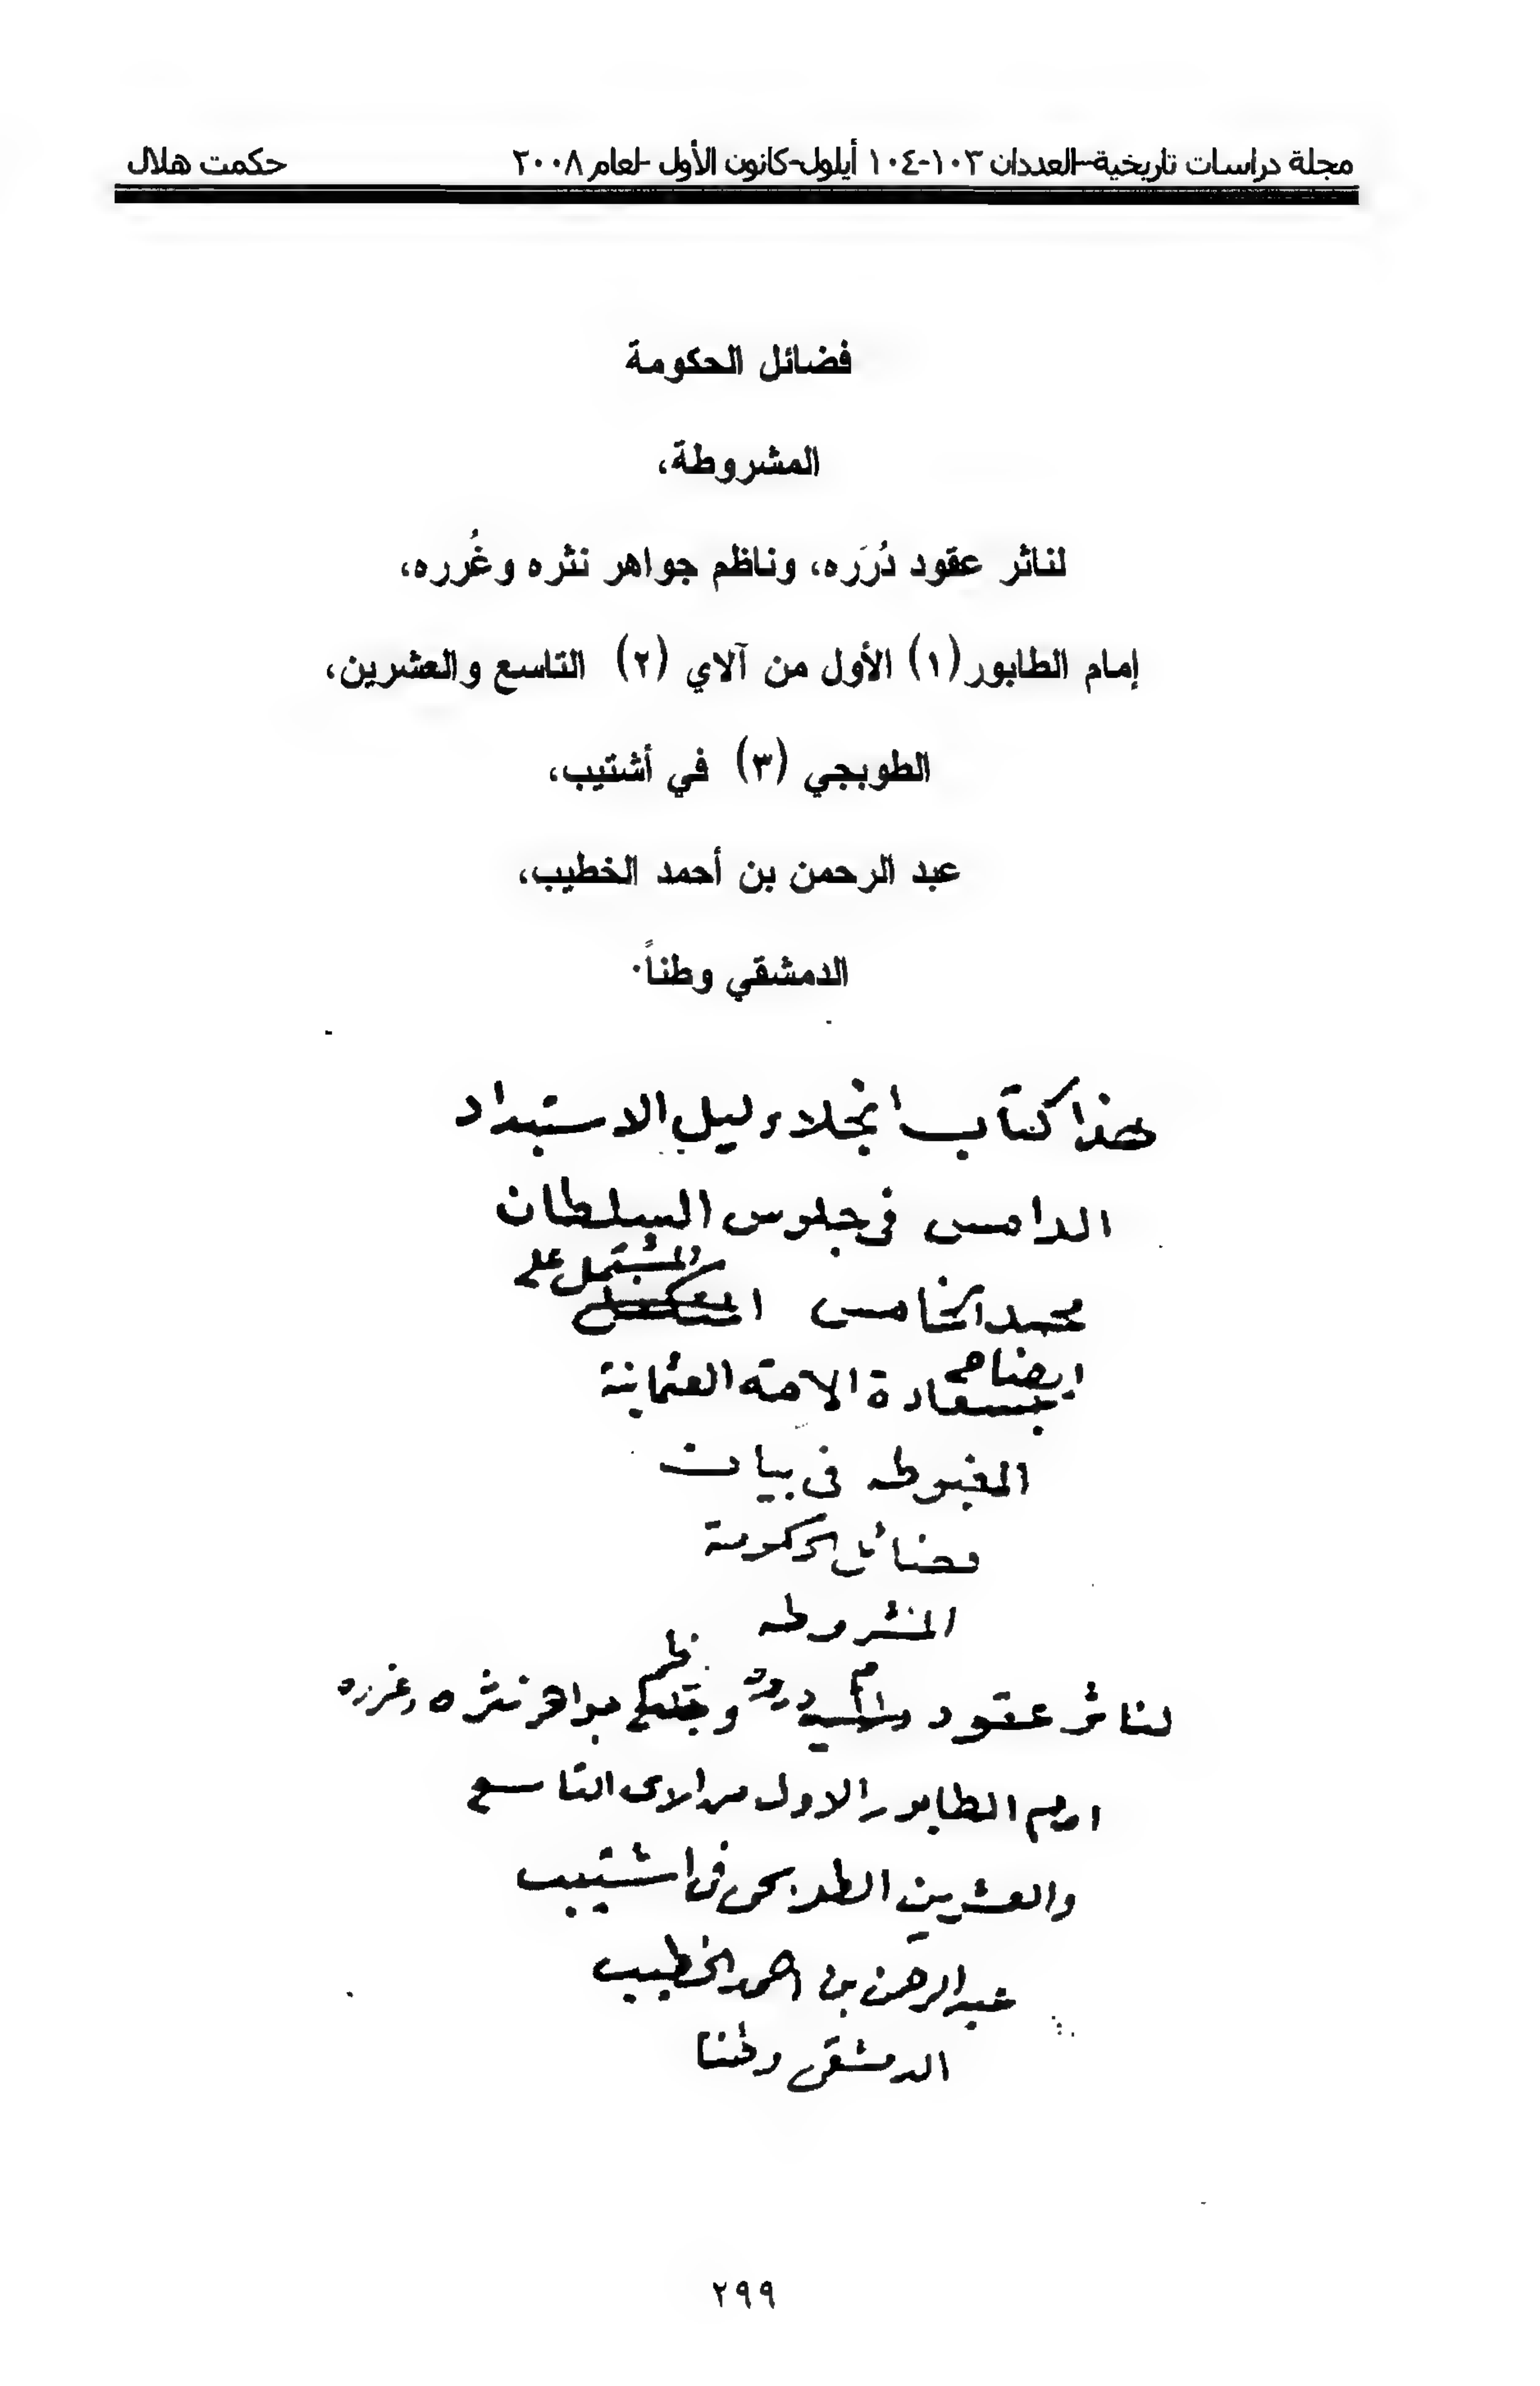 مجلة دراسات تاريخية-العددان ١٠٣-١٠٤ أيلول-كانون الأول -لعام ٢٠٠٨ حكمت هلال
فضائل الحكومة
المشروطة،
لناثر عقود دُرَره، وناظم جواهر نثره وغُرره،
إمام الطابور(١) الأول من آلاي (٢) التاسع والعشرين،
الطوبجي (٣) في أشتيب،
عبد الرحمن بن أحمد الخطيب،
الدمشقي وطناً.
هذا كتاب انجلاء ليل الاستبداد
الدامس فى جلوس السلطان
المشتمل على
محمد الخامس
ايضاح
سعادة الامة العثمانية
المغبوطه فى بيان
فضائل الحكومة
المشروطه
لناثر عقود درره وناظم جواهر نثره وغرره
امام الطابور الاول من الاى التاسع
والعشرين الطوبجى فى اشتيب
عبد الرحمن بن احمد الخطيب
الدمشقى وطنا
٢٩٩